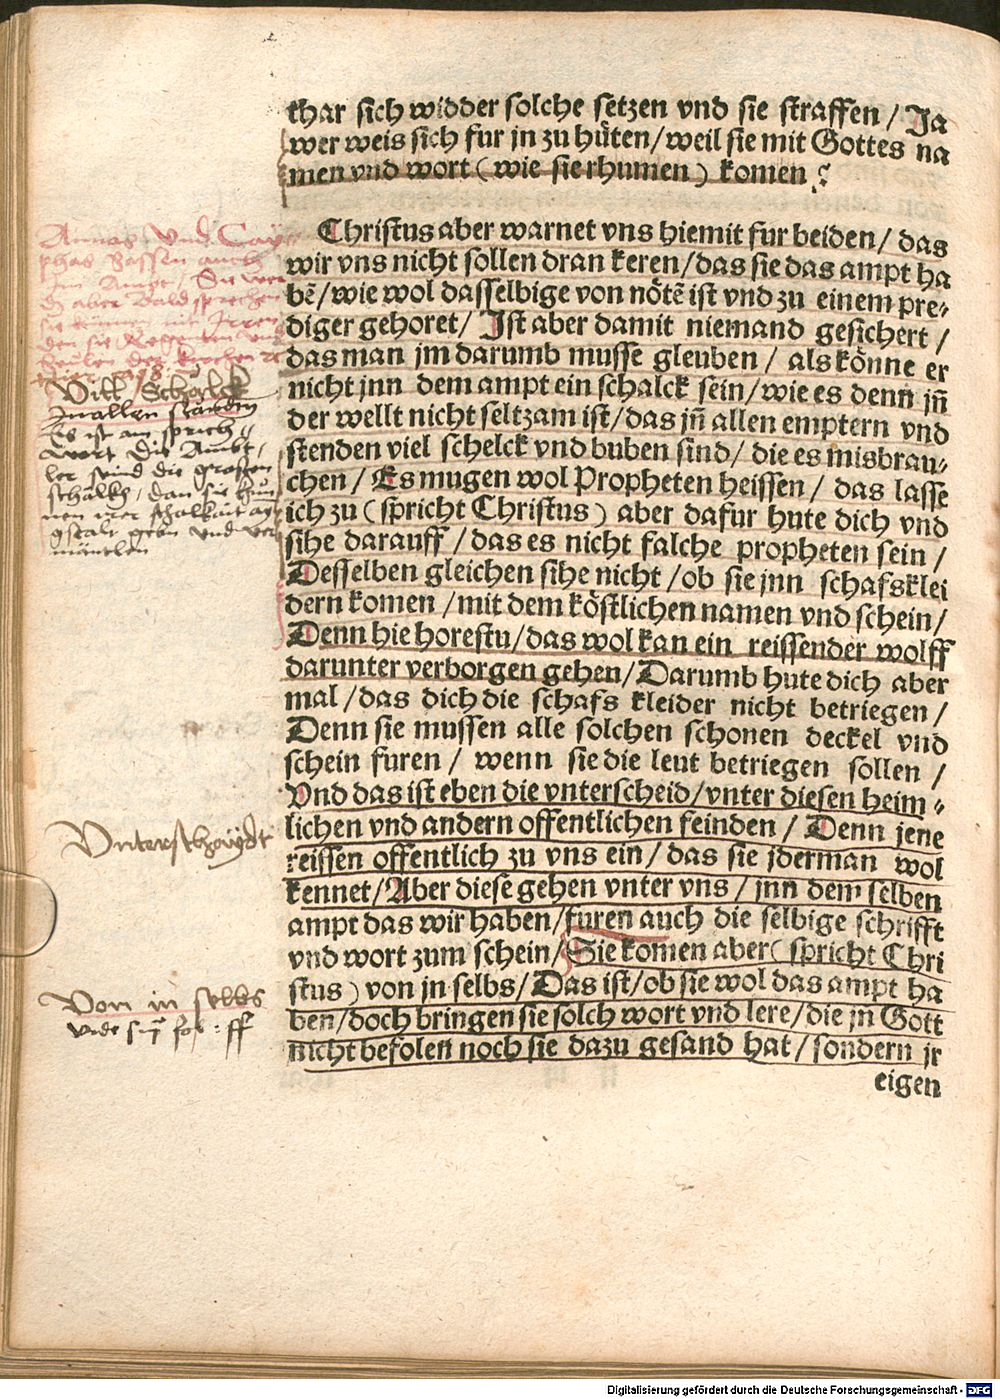 thar sich widder solche setzen vnd sie straffen / Ja
wer weis sich fur jn zu hüten / weil sie mit Gottes na
men vnd wort ( wie sie rhumen ) komen ?
Christus aber warnet vns hiemit fur beiden / das
wir vns nicht sollen dran keren / das sie das ampt ha
bẽ / wie wol dasselbige von nötẽ ist vnd zu einem pre⸗
diger gehoret / Ist aber damit niemand gesichert /
das man jm darumb musse gleuben / als könne er
nicht jnn dem ampt ein schalck sein / wie es denn jñ
der wellt nicht seltzam ist / das jñ allen emptern vnd
stenden viel schelck vnd buben sind / die es misbrau⸗
chen / Es mugen wol Propheten heissen / das lasse
ich zu ( spricht Christus ) aber dafur hute dich vnd
sihe darauff / das es nicht falche propheten sein /
Desselben gleichen sihe nicht / ob sie jnn schafsklei
dern komen / mit dem köstlichen namen vnd schein /
Denn hie horestu / das wol kan ein reissender wolff
darunter verborgen gehen / Darumb hute dich aber
mal / das dich die schafs kleider nicht betriegen /
Denn sie mussen alle solchen schonen deckel vnd
schein furen / wenn sie die leut betriegen sollen /
Vnd das ist eben die vnterscheid / vnter diesen heim⸗
lichen vnd andern offentlichen feinden / Denn jene
reissen offentlich zu vns ein / das sie jderman wol
kennet / Aber diese gehen vnter vns / jnn dem selben
ampt das wir haben / furen auch die selbige schrifft
vnd wort zum schein / Sie komen aber ( spricht Chri
stus ) von jn selbs / Das ist / ob sie wol das ampt ha
ben / doch bringen sie solch wort vnd lere / die jn Gott
nicht befolen noch sie dazu gesand hat / sondern jr
eigen
Annas Vnd Cay
phas Sassen auch
im Ampt /
aber Bald sprechen
Vill Schöelck
In allen stenden
Es ist ain sprich
Wort Die Ambt
ler seind die grosten
schälkh / dan sie khun
nen irer schalkait ain
gstalt geben vnd ver
mäntlen
Vnterschaydt
Von in selbs
Digitalisierung gefördert durch die Deutsche Forschungsgemeinschaft - DFG